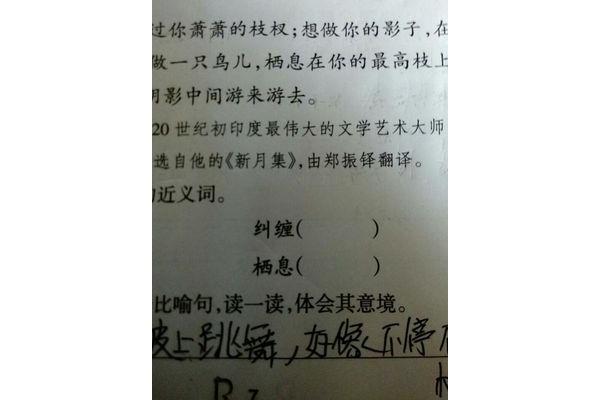 过你萧萧的枝杈;想做你的影子,在
做一只鸟儿,栖息在你的最高枝上
阴影中间游来游去。
20世纪初印度最伟大的文学艺术大师
选自他的《新月集》,由郑振铎翻译。
近义词。
纠缠(      )
栖息(      )
比喻句,读一读,体会其意境。
波上跳舞,好像不停